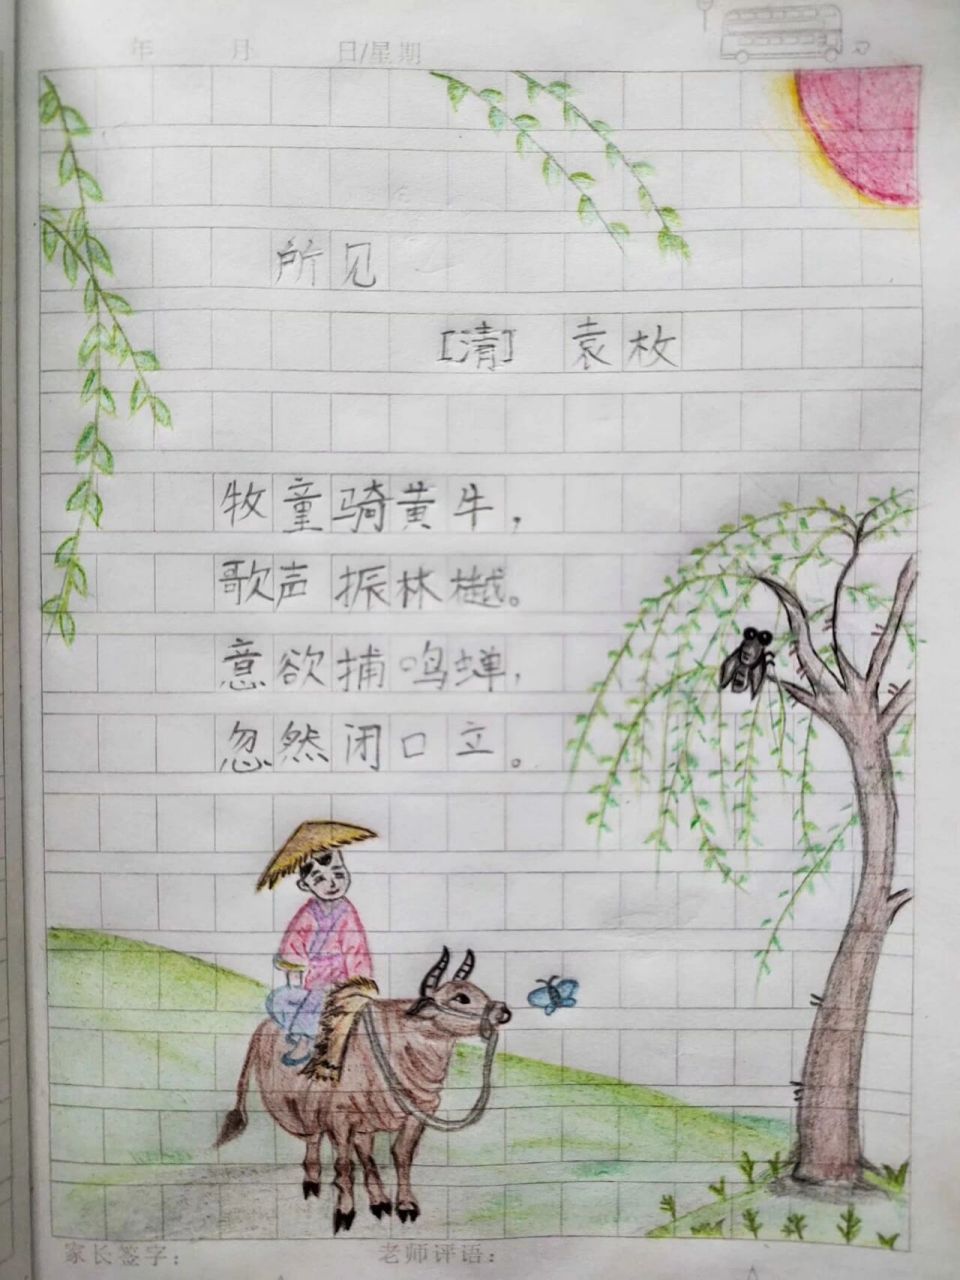 年 月 日/星期
所见
[清] 袁枚
牧童骑黄牛，
歌声振林樾。
意欲捕鸣蝉，
忽然闭口立。
家长签字： 老师评语：